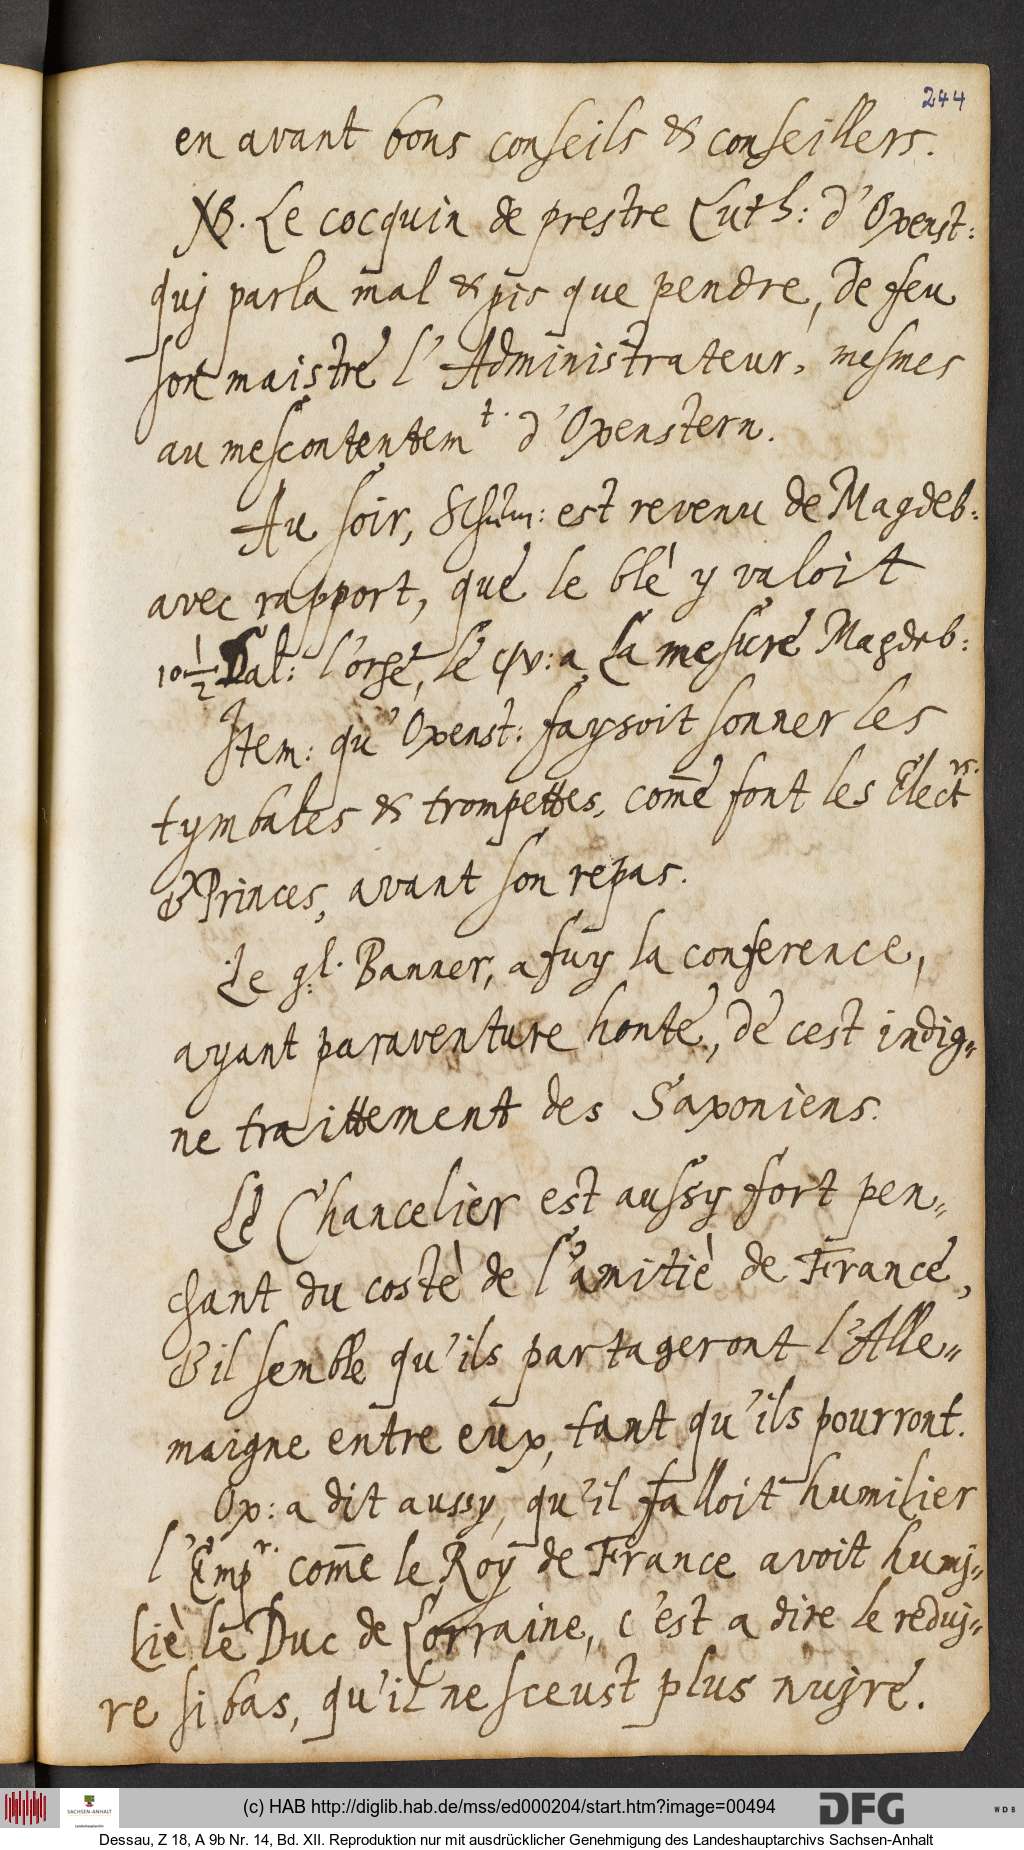 244
en avant bons conseils & conseillers.
NB. Le cocquin de prestre Luth: d'Oxenst:
quj parla mal & pis que pendre, de feu
son maistre l'Administrateur, mesmes
au mescontentem.t d'Oxenstern.
Au soir, est revenu de Magdeb:
avec rapport, que le blè y valoit
10 1/2 Dal: l'orge, le a la mesure Magdeb:
Item: qu'Oxenst: faysoit sonner les
tymbales & trompettes, com̄e font les Elect.rs
& Princes, avant son repas.
Le g.l. Banner, a fuy la conference,
ayant paraventure honte, de cest indig=
ne traittement des Saxoniens.
Le Chancelier est aussy fort pen=
chant du costè de l'amitiè de France,
& il semble qu'ils partageront l'Alle=
maigne entre eux, tant qu'ils pourront.
Ox: a dit aussy, qu'il falloit humilier
l'Emp.r com̄e le Roy de France avoit humj=
liè le Duc de Lorraine, c'est a dire le reduj=
re si bas, qu'il ne sceust plus nujre.
SACHSEN-ANHALT
Landeshauptarchiv
(c) HAB http://diglib.hab.de/mss/ed000204/start.htm?image=00494
DFG
WDB
Dessau, Z 18, A 9b Nr. 14, Bd. XII. Reproduktion nur mit ausdrücklicher Genehmigung des Landeshauptarchivs Sachsen-Anhalt